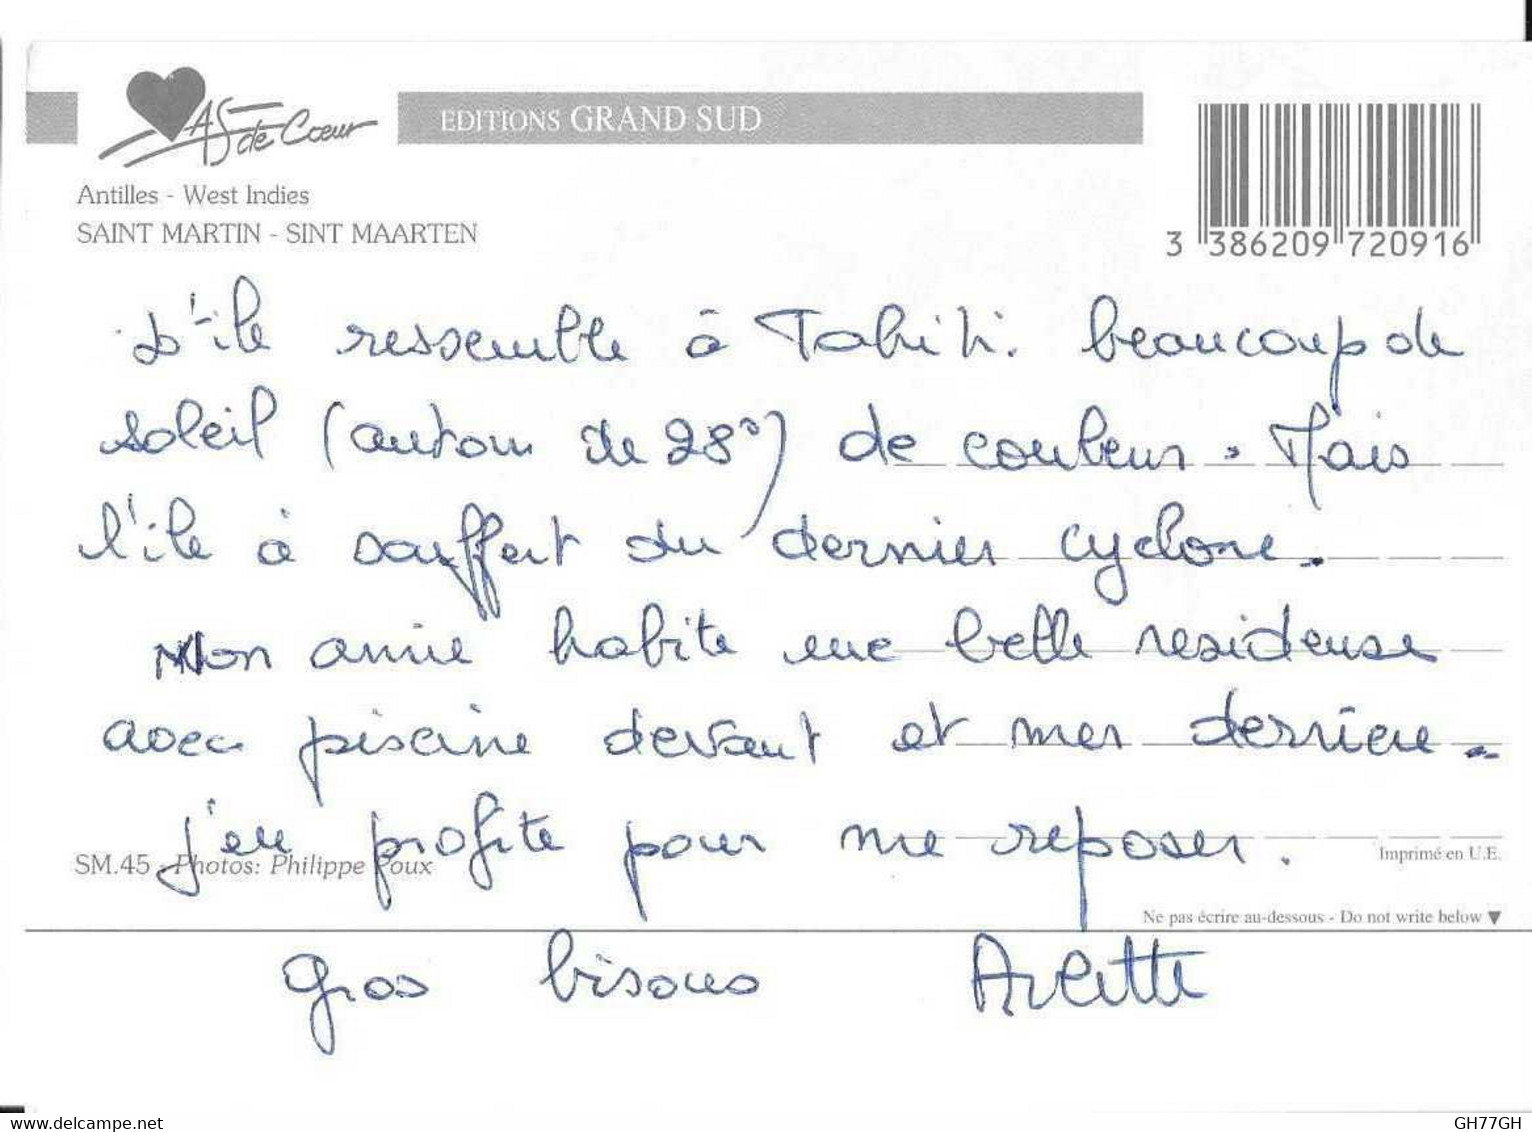 AS de Cœur
EDITIONS GRAND SUD
Antilles - West Indies
SAINT MARTIN - SINT MAARTEN
3 386209 720916
L'ile ressemble à Tahiti. beaucoup de
soleil (autour de 28°) de couleur. Mais
l'ile à souffert du dernier cyclone.
Mon amie habite une belle residense
avec piscine devant et mer derriere.
j'en profite pour me reposer.
SM.45 - Photos: Philippe Poux
Imprimé en U.E.
Ne pas écrire au-dessous - Do not write below ▼
Gros bisous Arlette
www.delcampe.net
GH77GH